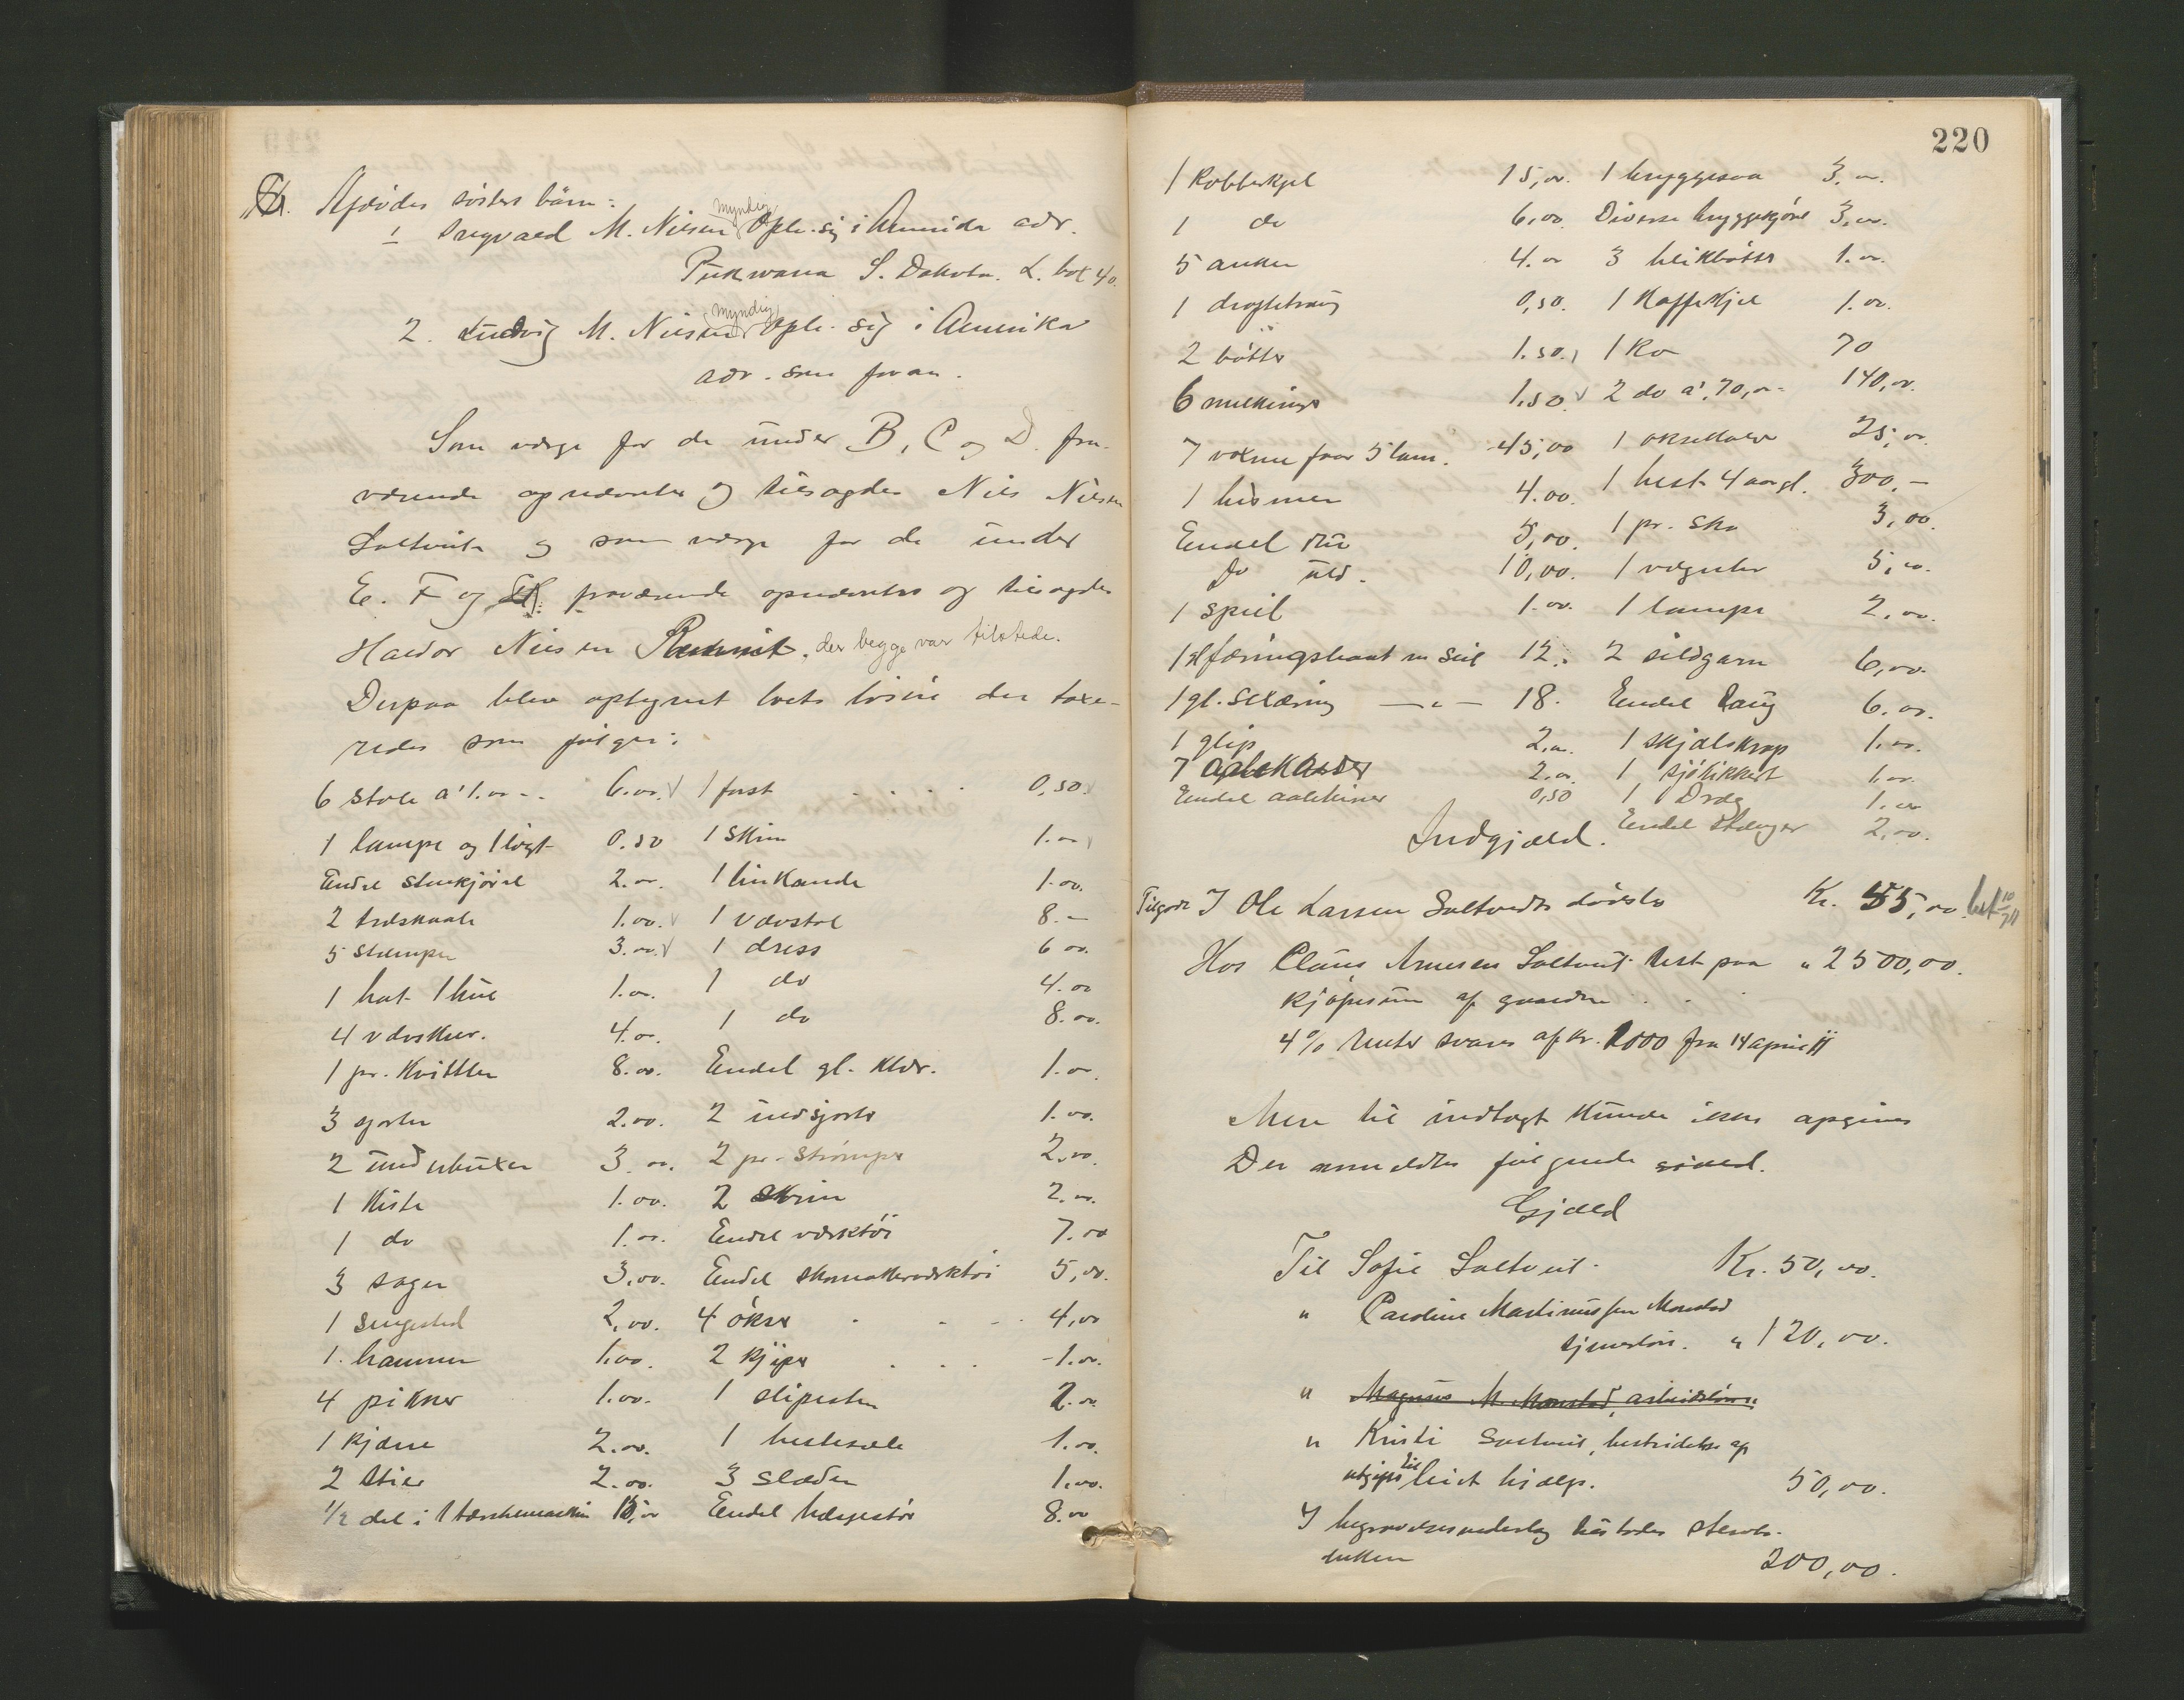 Afdødes søsters børn:
1 Sregvald M. Nilsen myndig Oph. sig i Amerika adr.
Pukwana S. Dakota. L. box 40.
2. Ludvig M. Nilsen myndig Oph. sig i Amerika
adr. som foran.
Som værge for de under B, C og D. fra-
værende opnævntes og tilsagdes Nils Nilsen
Saltveit og som værge for de under
E. F og fraværende opnævntes og tilsagdes
Haldor Nilsen der begge var tilstede.
Derpaa blev optegnet boets løsøre der taxe-
redes som følger:
6 stole a' 1.00 6.00 1 fast 0,50
1 lampe og 1 løgt 0.50 1 skrin 1.00
Endel stenkjørel 2.00 1 linkande 1.00
2 træskaale 1.00. 1 vævstol 8.-
5 stamper 3.00 1 dress 6 00.
1 hat 1 hue 1.00. 1 do 4.00
4 vævskeer. 4.00. 1 do 8.00.
1 pr. kvittler 8.00. Endel gl. klær. 1.00.
3 sjorter 2.00. 2 uldsjorter 1.00.
2 underbuxer 3.00. 2 pr. strømper 2.00.
1 kiste 1.00. 2 skrin 2.00.
1 do 1.00. Endel værktøi 7.00
3 sager 3,00. Endel skomakerværktøi 5,00.
1 sengested 2,00. 4 økser 4,00
1. hammer 1.00. 2 kjiper 1.00.
4 pikker 1.00. 1 slipesten 2.00.
1 kjærre 2.00. 1 hestesæle 1.00.
2 stier 2.00. 3 slæder 1.00.
1/2 del i 1 tærskemaskin 15,00 Endel hæsjestør 8.00
220
1 kobberkjel 15,00. 1 bryggesaa 3,00.
1 do 6,00. Diverse bryggekjørel 3,00.
5 anker 4.00 3 blikbøtter 1.00.
1 0,50. 1 kaffekjel 1.00.
2 bøtter 1.50. 1 ko 70
6 melkeringer 1.50 2 do a' 70,00 140,00.
7 voxne faar 5 lam. 45,00 1 oksekalv 25,00.
1 bismer 4.00. 1 hest 4 aar gl. 300.-
Endel 5,00. 1 pr. sko 3,00.
do uld. 10,00. 1 væguhr 5,00.
1 speil 1.00. 1 lampe 2,00.
1 gl færingsbaat m seil 12. 2 sildgarn 6,00.
1 gl. sexæring —"— 18. Endel taug 6.00.
1 glip 2.00. 1 skjælskrap 1.00.
7 2.00 1 sjøkikkert 1.00.
Endel 0,50 1 Dræg 1.00
Indgjæld. Endel stænger 2,00.
Tilgode I Ole Larsen Saltvedts dødsbo Kr. 55,00. bet 10/7 11
Hos Claus Arnesen Saltveit Rest paa " 2500,00.
kjøpesum af gaarden . . .
4% renter svares af kr. 1000 fra 14 april 11
Mere til indtægt kunde ikke opgives
Der anmeldtes følgende gjæld.
Gjæld
Til Sofie Saltveit Kr. 50,00.
" Caroline Martinussen Monstad
tjenerløn. " 120,00.
" Magnus M. Monstad, arbeidsløn
" Kristi Saltveit, bestridelse af
utgifter til leiet hjælp. 50,00.
I begravelsesunderlag tilstodes sterv-
200,00.